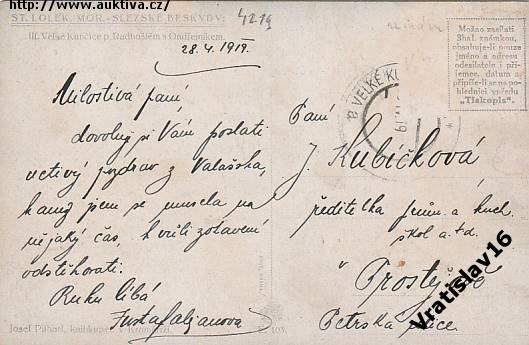 http://www.auktiva.cz/
ST. LOLEK, MOR.-SLEZSKÉ BESKYDY:
III. Velké Kunčice p. Radhoštěm s Ondřejníkem.
4219
28. 4. 1919.
Možno zaslati
3hal. známkou,
obsahuje-li pouze
jméno a adresu
odesilatele i pří-
jemce, datum a
připíše-li se na po-
hlednici vpředu
„Tiskopis“.
VELKÉ KU
Milostivá paní,
dovoluji si Vám poslati
uctivý pozdrav z Valašska,
kamž jsem se musela na
nějaký čas, k vůli zotavení
odstěhovati.
Ruku líbá
Paní
J. Kubíčková
ředitelka prům. a kuch.
škol a.t.d.
v Prostějově
Petrská ulice.
Josef Pithart, knihkupec v Kroměříži.
103.
Vratislav16